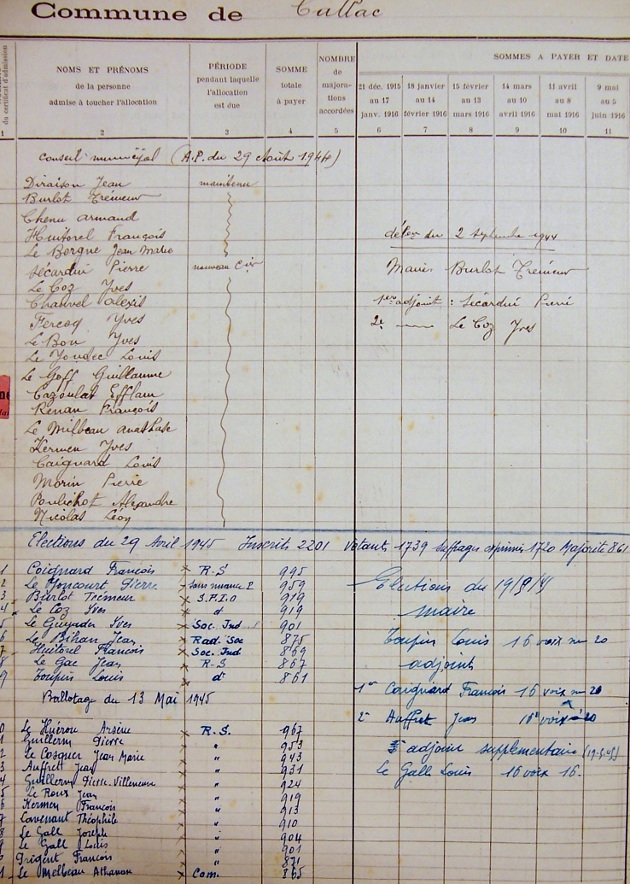 Commune de Callac
du certificat d'admission
NOMS ET PRÉNOMS
de la personne
admise à toucher l'allocation
PÉRIODE
pendant laquelle
l'allocation
est due
SOMME
totale
à payer
NOMBRE
de
majora-
tions
accordées
SOMMES A PAYER ET DATE
21 déc. 1915
au 17
janv. 1916
18 janvier
au 14
février 1916
15 février
au 13
mars 1916
14 mars
au 10
avril 1916
11 avril
au 8
mai 1916
9 mai
au 5
juin 1916
1 2 3 4 5 6 7 8 9 10 11
Conseil municipal (A.P. du 29 Août 1944)
Diraison Jean
Burlot Trémeur
Chenu armand
Huitorel François
Le Borgne Jean Marie
Sécardin Pierre nouveau
Le Coz Yves
Chauvel alexis
Fercoq Yves
Le Bon Yves
Le Youdec Louis
Le Goff Guillaume
Cazoulat Efflam
Renan François
Le Milbeau anathase
Kermen Yves
Caignard Louis
Morin Pierre
Poulichot Alexandre
Nicolas Léon
du 2 Septembre 1944
Maire Burlot Trémeur
1er adjoint : Sécardin Pierre
2e Le Coz Yves
Elections du 29 Avril 1945 Inscrits 2201 Votants 1739 Suffrages exprimés 1720 Majorité 861
1 Coignard François x R.S 995
2 Le Joncourt Pierre x sans nuance 959
3 Burlot Trémeur x S.F.I.O 919
4 Le Coz Yves x d° 919
5 Le Guyader Yves x Soc. Ind 901
6 Le Bihan Jean x Rad. Soc 875
7 Huitorel François x Soc. Ind 869
8 Le Gac Jean x R.S 867
9 Toupin Louis x d° 861
Ballotage du 13 Mai 1945
0 Le Huérou Arsène x R.S. 967
1 Guillerm Pierre x " 953
2 Le Cosquer Jean Marie x " 943
3 Auffret Jean x " 931
4 Guillerm Pierre Villeneuve x " 924
5 Le Roux Jean x " 919
6 Kermen François x " 913
7 Cavenant Théophile x " 910
8 Le Gall Joseph x " 904
9 Le Gall Louis x " 901
0 Prigent François x " 871
1 Le Melbeau Athanase x Com. 865
Elections du 19/5/45
maire
Toupin Louis 16 voix sur 20
adjoints
1er Coignard François 16 voix sur 20
2e Auffret Jean voix 20
3e adjoint supplémentaire (19.5.45)
Le Gall Louis 16 voix 16.